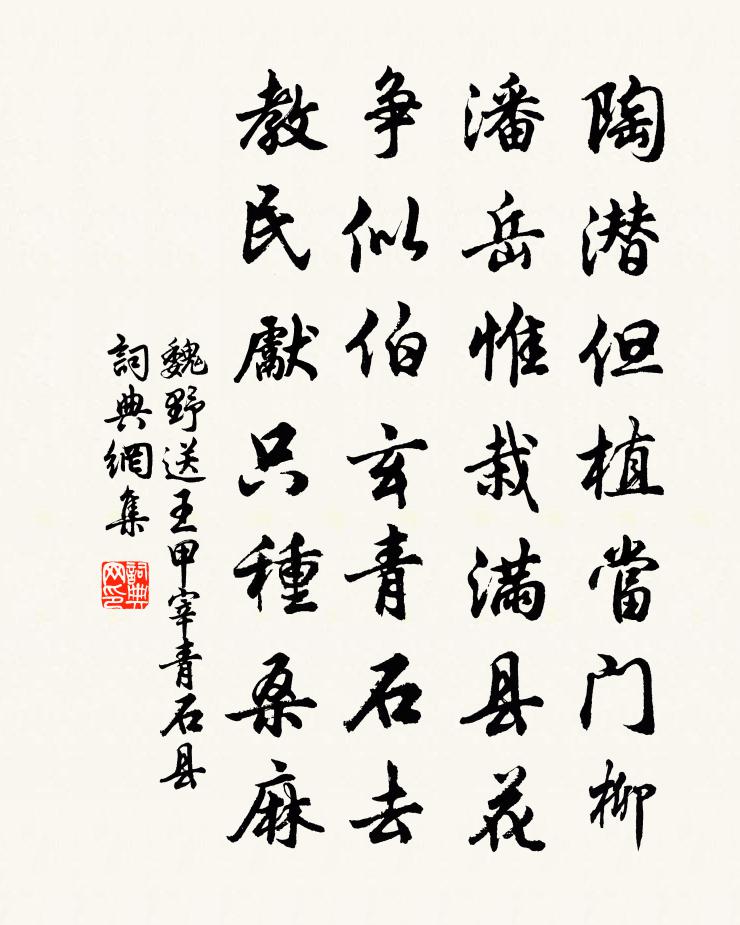 陶潜但植當门柳
潘岳惟栽满县花
争似伯玄青石去
教民獻只種桑麻
魏野送王甲宰青石县
詞典網集
詞典
网印